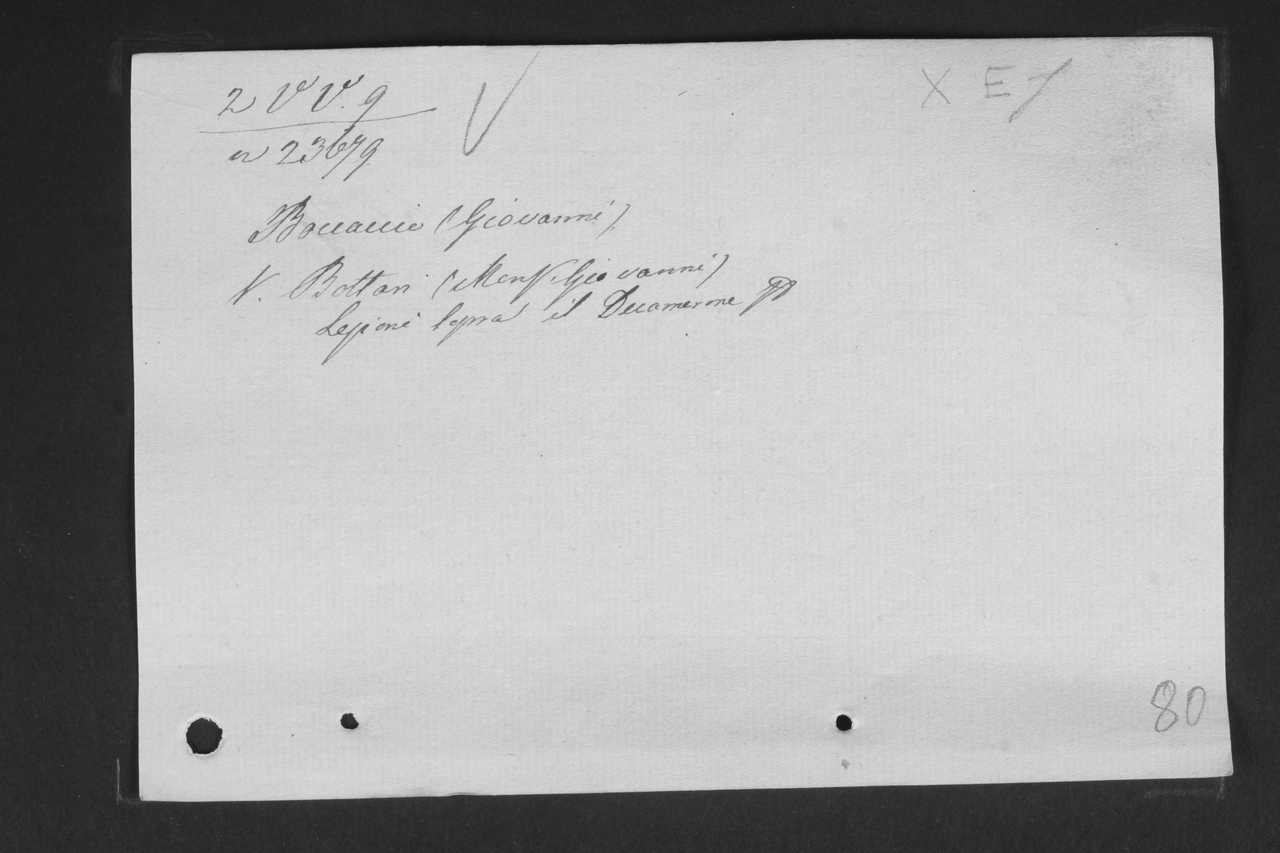 2 V V. 9
n 23679
V
X E /
Boccaccio (Giovanni)
V. Bottari (Monsr. Giovanni)
Lezioni sopra il Decamerone
80